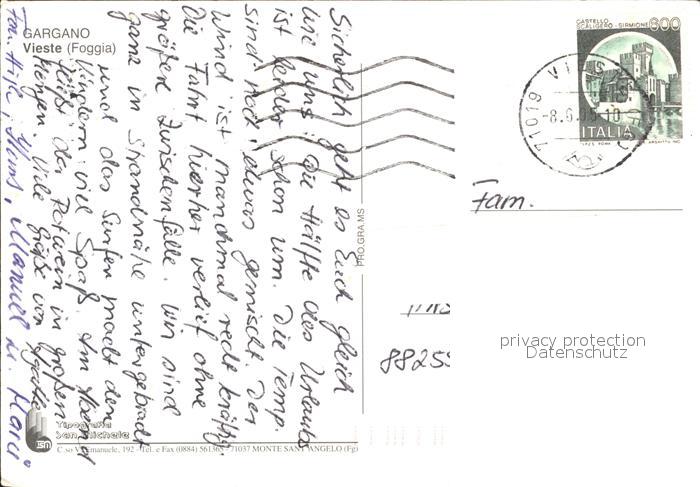 GARGANO
Vieste (Foggia)
Sicherlich geht es Euch gleich
wie uns. Die Hälfte des Urlaubs
ist leider schon um. Die Temp.
sind noch etwas gemischt. Der
Wind ist manchmal recht kräftig.
Die Fahrt hierher verlief ohne
größere Zwischenfälle. Wir sind
ganz in Strandnähe untergebracht
und das Surfen macht den
Kindern viel Spaß. Am Abend
läßt der Rotwein in großen
Viele Grüße von
Fam. Manuel u.
PRO.GRA.MS
CASTELLO
SCALIGERO - SIRMIONE
800
ITALIA
71019 VIESTE
-8.6.
Fam.
8825
privacy protection
Datenschutz
Tipografia
San Michele
C.so V. Emanuele, 192 - Tel. e Fax (0884) 561365 - 71037 MONTE SANT'ANGELO (Fg)